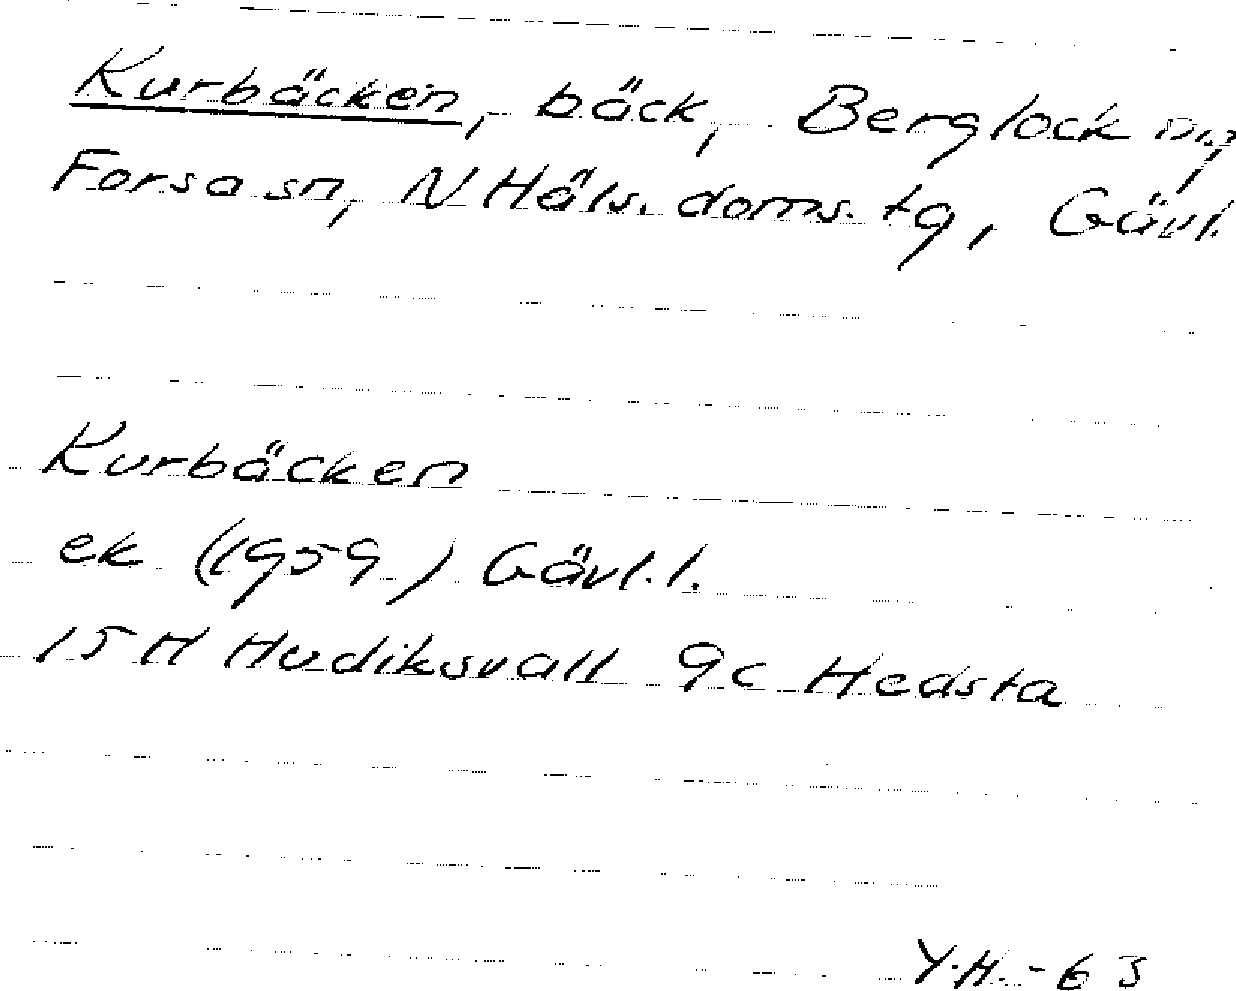 Kurbäcken, bäck, Berglock
Forsa sn, N Häls. doms. tg, Gävl.
Kurbäcken
ek (1959) Gävl. l.
15 H Hudiksvall 9c Hedsta
Y.H. - 63